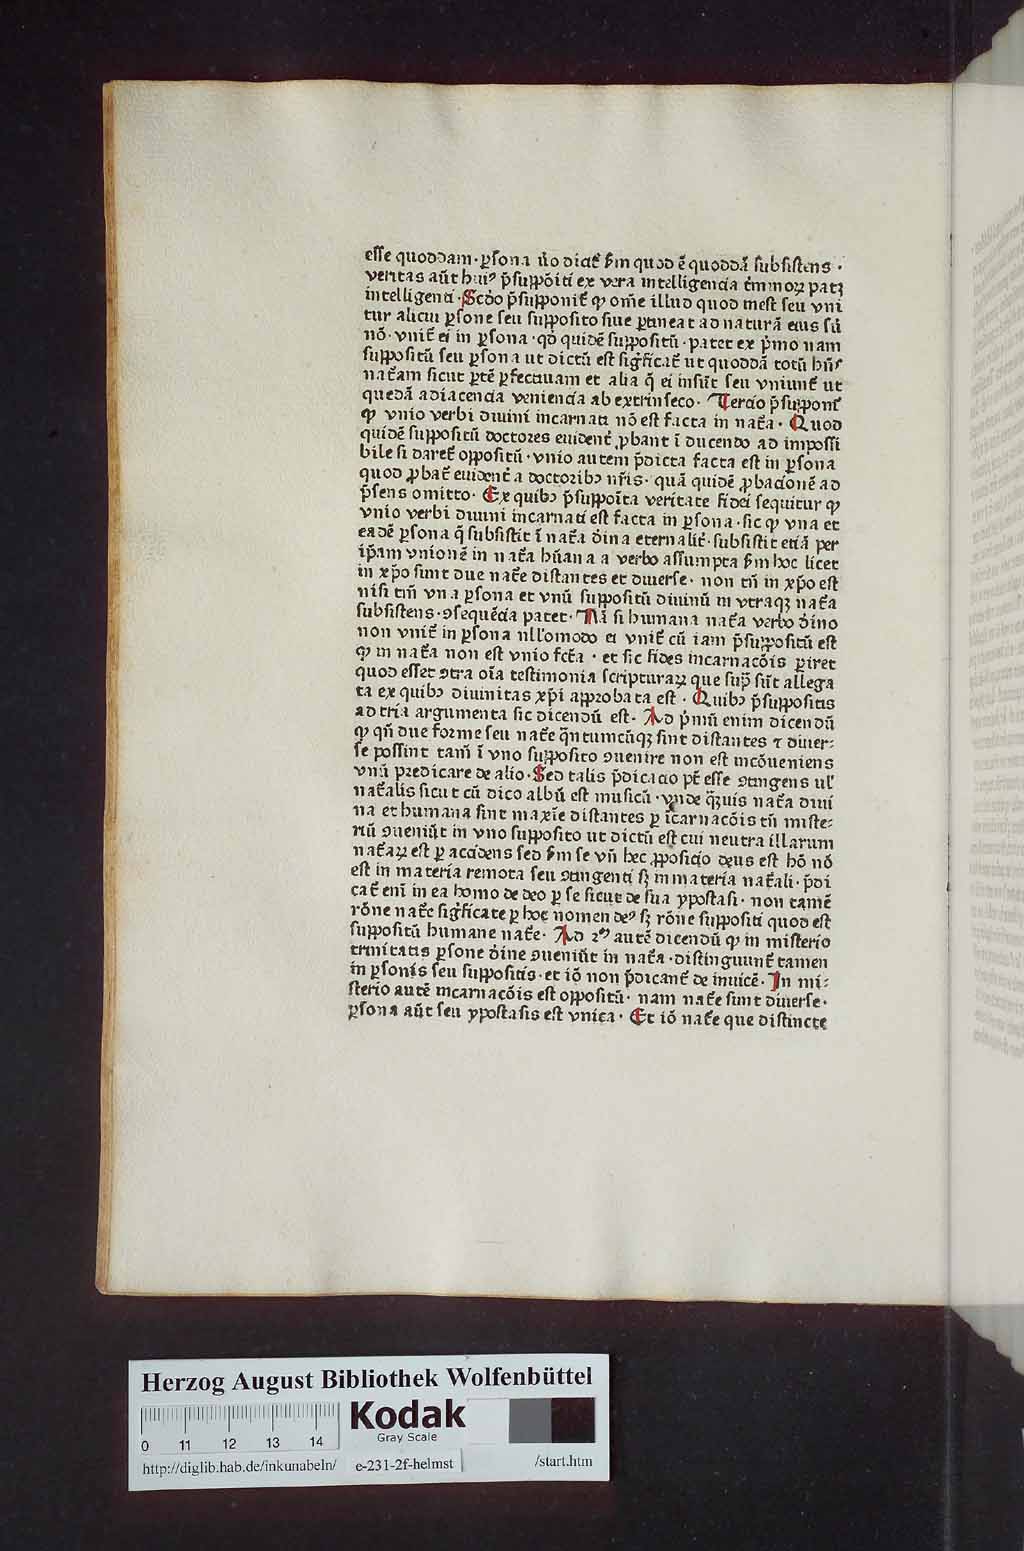 esse quoddam · ꝑsona ũo dicat᷑ ẜm quod ē quoddā subsistens ·
veritas aũt huiꝰ p̄suppōiti ex vera intelligencia t᷑minoꝝ patꝫ
intelligenti · Scd̄o p̄supponit᷑ ꝙ om̄e illud quod inest seu vni
tur alicui ꝑsone seu supposito siue ꝑtineat ad naturā eius siū
nō · vnit᷑ ei in ꝑsona · qd̄ quidē suppositū · patet ex p̄mo nam
suppositū seu ꝑsona ut dictū est sig̍ficat᷑ ut quoddā totū hn̄s
nat᷑am sicut ꝑtē ꝑfectiuam et alia q̄ ei insūt seu vniunt᷑ ut
quedā adiacencia veniencia ab extrinseco · Tercio p̄supponit᷑
ꝙ vnio verbi diuini incarnati nō est facta in nat᷑a · Quod
quidē suppositū doctores euident᷑ ꝓbant ī ducendo ad impossi
bile si daret᷑ oppositū · vnio autem p̄dicta facta est in ꝑsona
quod ꝓbat᷑ euident᷑ a doctoribꝫ nr̄is · quā quidē ꝓbacionē ad
p̄sens omitto · Ex quibꝫ p̄suppoīta veritate fidei sequitur ꝙ
vnio verbi diuini incarnati est facta in ꝑsona · sic ꝙ vna et
eadē ꝑsona q̄ subsistit ī nat᷑a d̄ina eternalit᷑ · subsistit etiā per
ip̄am vnionē in nat᷑a hūana a verbo assumpta ẜm hoc licet
in xp̄o sunt due nat᷑e distantes et diuerse · non tn̄ in xp̄o est
nisi tm̄ vna ꝑsona et vnū suppositū diuinū in vtraqꝫ nat᷑a
subsistens · ꝯsequēcia patet · Nā si humana nat᷑a verbo d̄ino
non vnit᷑ in ꝑsona nll'omodo ei vnit᷑ cū iam p̄suppositū est
ꝙ in nat᷑a non est vnio fc̄ta · et sic fides incarnacōis ꝑiret
quod esset ꝯtra oīa testimonia scripturaꝝ que sup̄ sūt allega
ta ex quibꝫ diuinitas xp̄i approbata est · Quibꝫ p̄suppositis
ad tria argumenta sic dicendū est · Ad p̄mū enim dicendū
ꝙ qn̄ due forme seu nat᷑e q̄ntumcūqꝫ sint distantes ⁊ diuer⸗
se possint tam̄ ī vno supposito ꝯuenire non est incōueniens
vnū predicare de alio · Sed talis p̄dicacio pt̄ esse ꝯtingens ul'
nat᷑alis sicut cū dico albū est musicū · vnde q̄ꝫuis nat᷑a diui
na et humana sint maxīe distantes ꝑ īcarnacōis tn̄ miste⸗
riū ꝯueniūt in vno supposito ut dictū est cui neutra illarum
nat᷑aꝝ est ꝑ accidens sed ẜm se vn̄ hec ꝓposicio deus est hō nō
est in materia remota seu ꝯtingenti sꝫ in materia nat᷑ali · p̄di
cat᷑ enī in ea homo de deo ꝑ se sicut de sua ypostasi · non tamē
rōne nat᷑e sig̍ficate ꝑ hoc nomen deꝰ sꝫ rōne suppositi quod est
suppositū humane nat᷑e · Ad 2ᵐ autē dicendū ꝙ in misterio
trinitatis ꝑsone d̄ine ꝯueniūt in nat᷑a · distinguunt᷑ tamen
in ꝑsonis seu suppositis · et iō non p̄dicant᷑ de inuicē · In mi⸗
sterio autē incarnacōis est oppositū · nam nat᷑e sunt diuerse ·
ꝑsona aūt seu ypostasis est vnica · Et iō nat᷑e que distincte
Herzog August Bibliothek Wolfenbüttel
Kodak
Gray Scale
0 11 12 13 14
http://diglib.hab.de/inkunabeln/ e-231-2f-helmst /start.htm